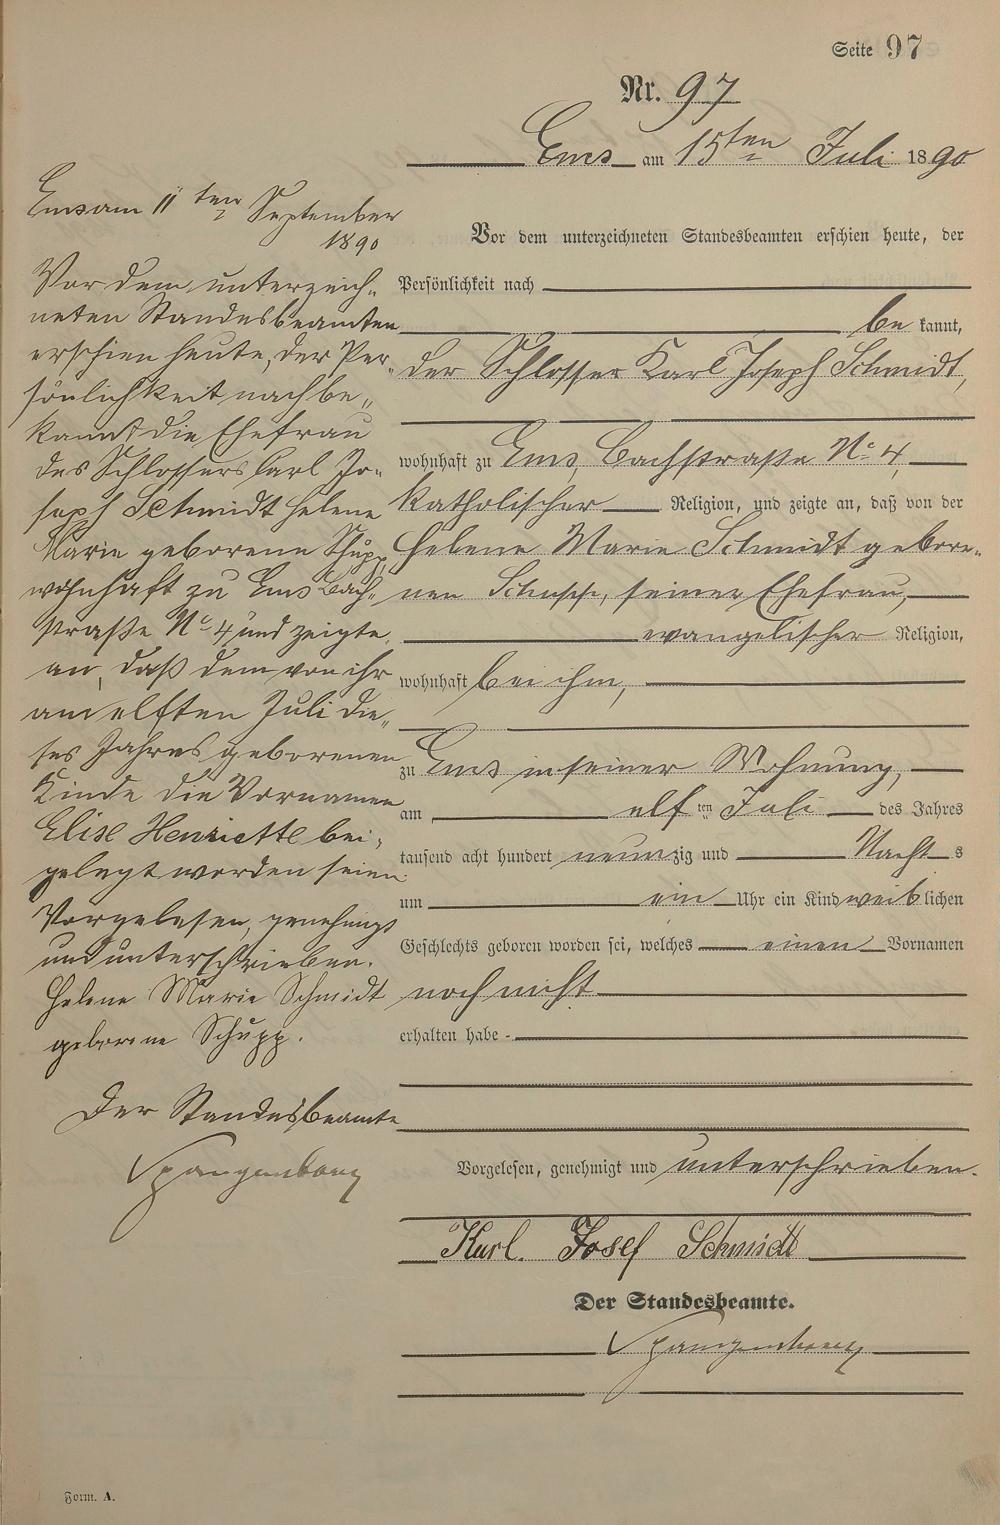 Seite 97
Nr. 97
Ems am 15ten Juli 1890
Vor dem unterzeichneten Standesbeamten erschien heute, der
Persönlichkeit nach
bekannt,
der Schlosser Karl Joseph Schmidt,
wohnhaft zu Ems, Bachstraße No 4,
katholischer Religion, und zeigte an, daß von der
Helene Marie Schmidt gebore-
nen Schupp, seiner Ehefrau,
evangelischer Religion,
wohnhaft bei ihm,
zu Ems in seiner Wohnung,
am elften Juli des Jahres
tausend acht hundert neunzig und Nachts
um ein Uhr ein Kind weiblichen
Geschlechts geboren worden sei, welches einen Vornamen
noch nicht
erhalten habe
Vorgelesen, genehmigt und unterschrieben.
Karl Josef Schmidt
Der Standesbeamte.
Spangenberg
Ems am 11ten September
1890
Vor dem unterzeich-
neten Standesbeamten
erschien heute, der Per-
sönlichkeit nach be-
kannt die Ehefrau
des Schlossers Carl Jo-
seph Schmidt Helene
Marie geborene Schupp,
wohnhaft zu Ems Bach-
straße No 4 und zeigte
an, daß dem von ihr
am elften Juli die-
ses Jahres geborenen
Kinde die Vornamen
Elise Henriette bei-
gelegt worden seien
Vorgelesen, genehmigt
und unterschrieben.
Helene Marie Schmidt
geborene Schupp.
Der Standesbeamte
Spangenberg
Form. A.